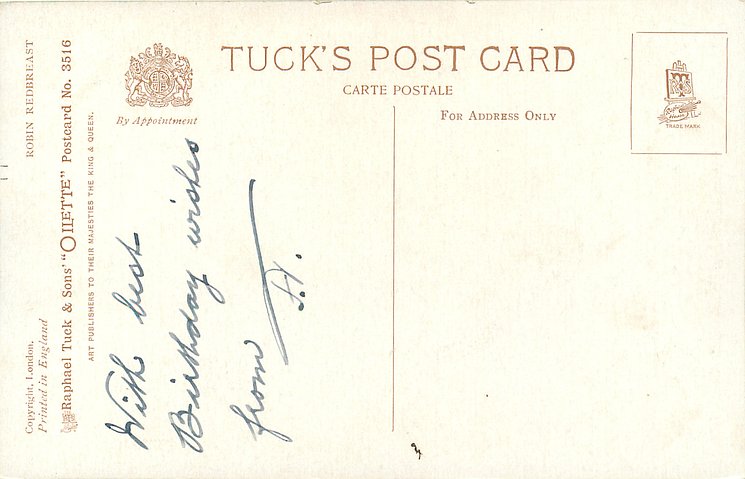 TUCK'S POST CARD
CARTE POSTALE
By Appointment
FOR ADDRESS ONLY
TRADE MARK
ROBIN REDBREAST
Copyright, London.
Printed in England
Raphael Tuck & Sons' "OILETTE" Postcard No. 3516
ART PUBLISHERS TO THEIR MAJESTIES THE KING & QUEEN.
With best
Birthday wishes
from